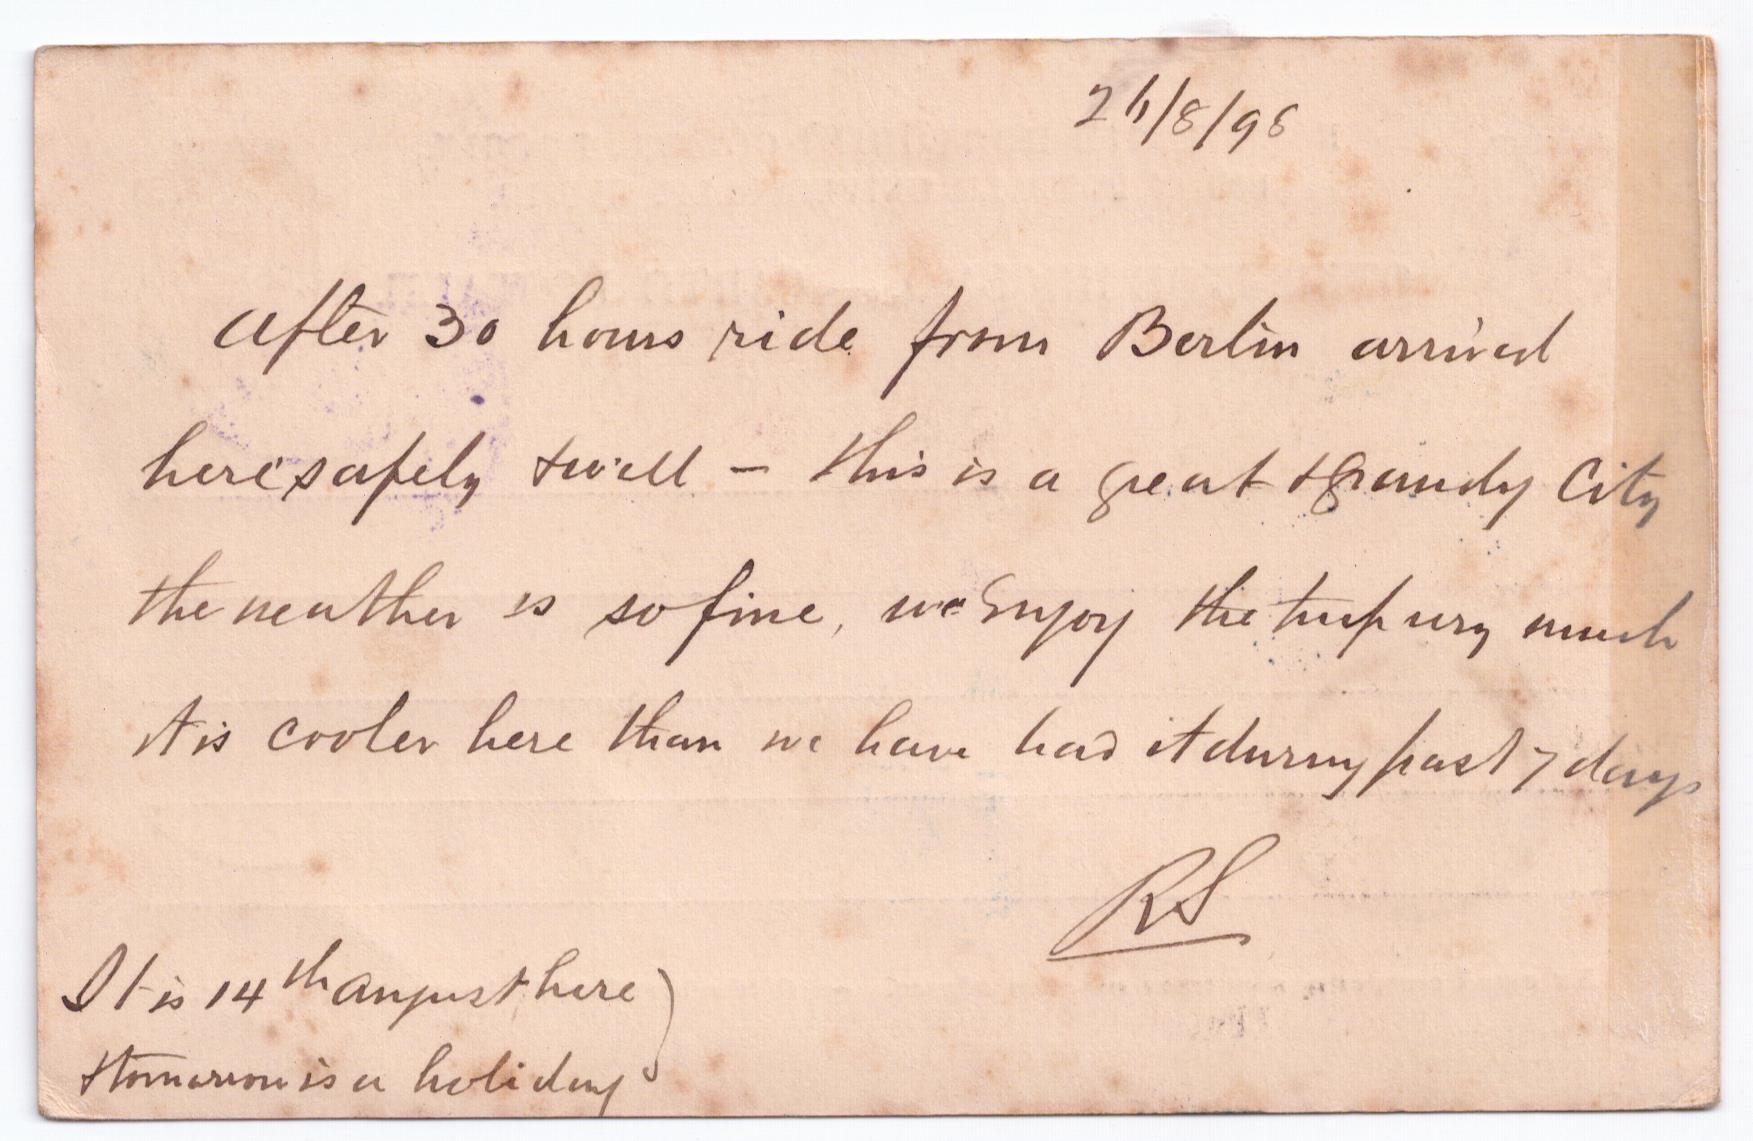 26/8/98
After 30 hours ride from Berlin arrived
here safely & well – this is a great & grandy City
the weather is so fine, we Enjoy the trip very much
It is cooler here than we have had it during past 7 days
RS
It is 14th august here
& tomorrow is a holiday